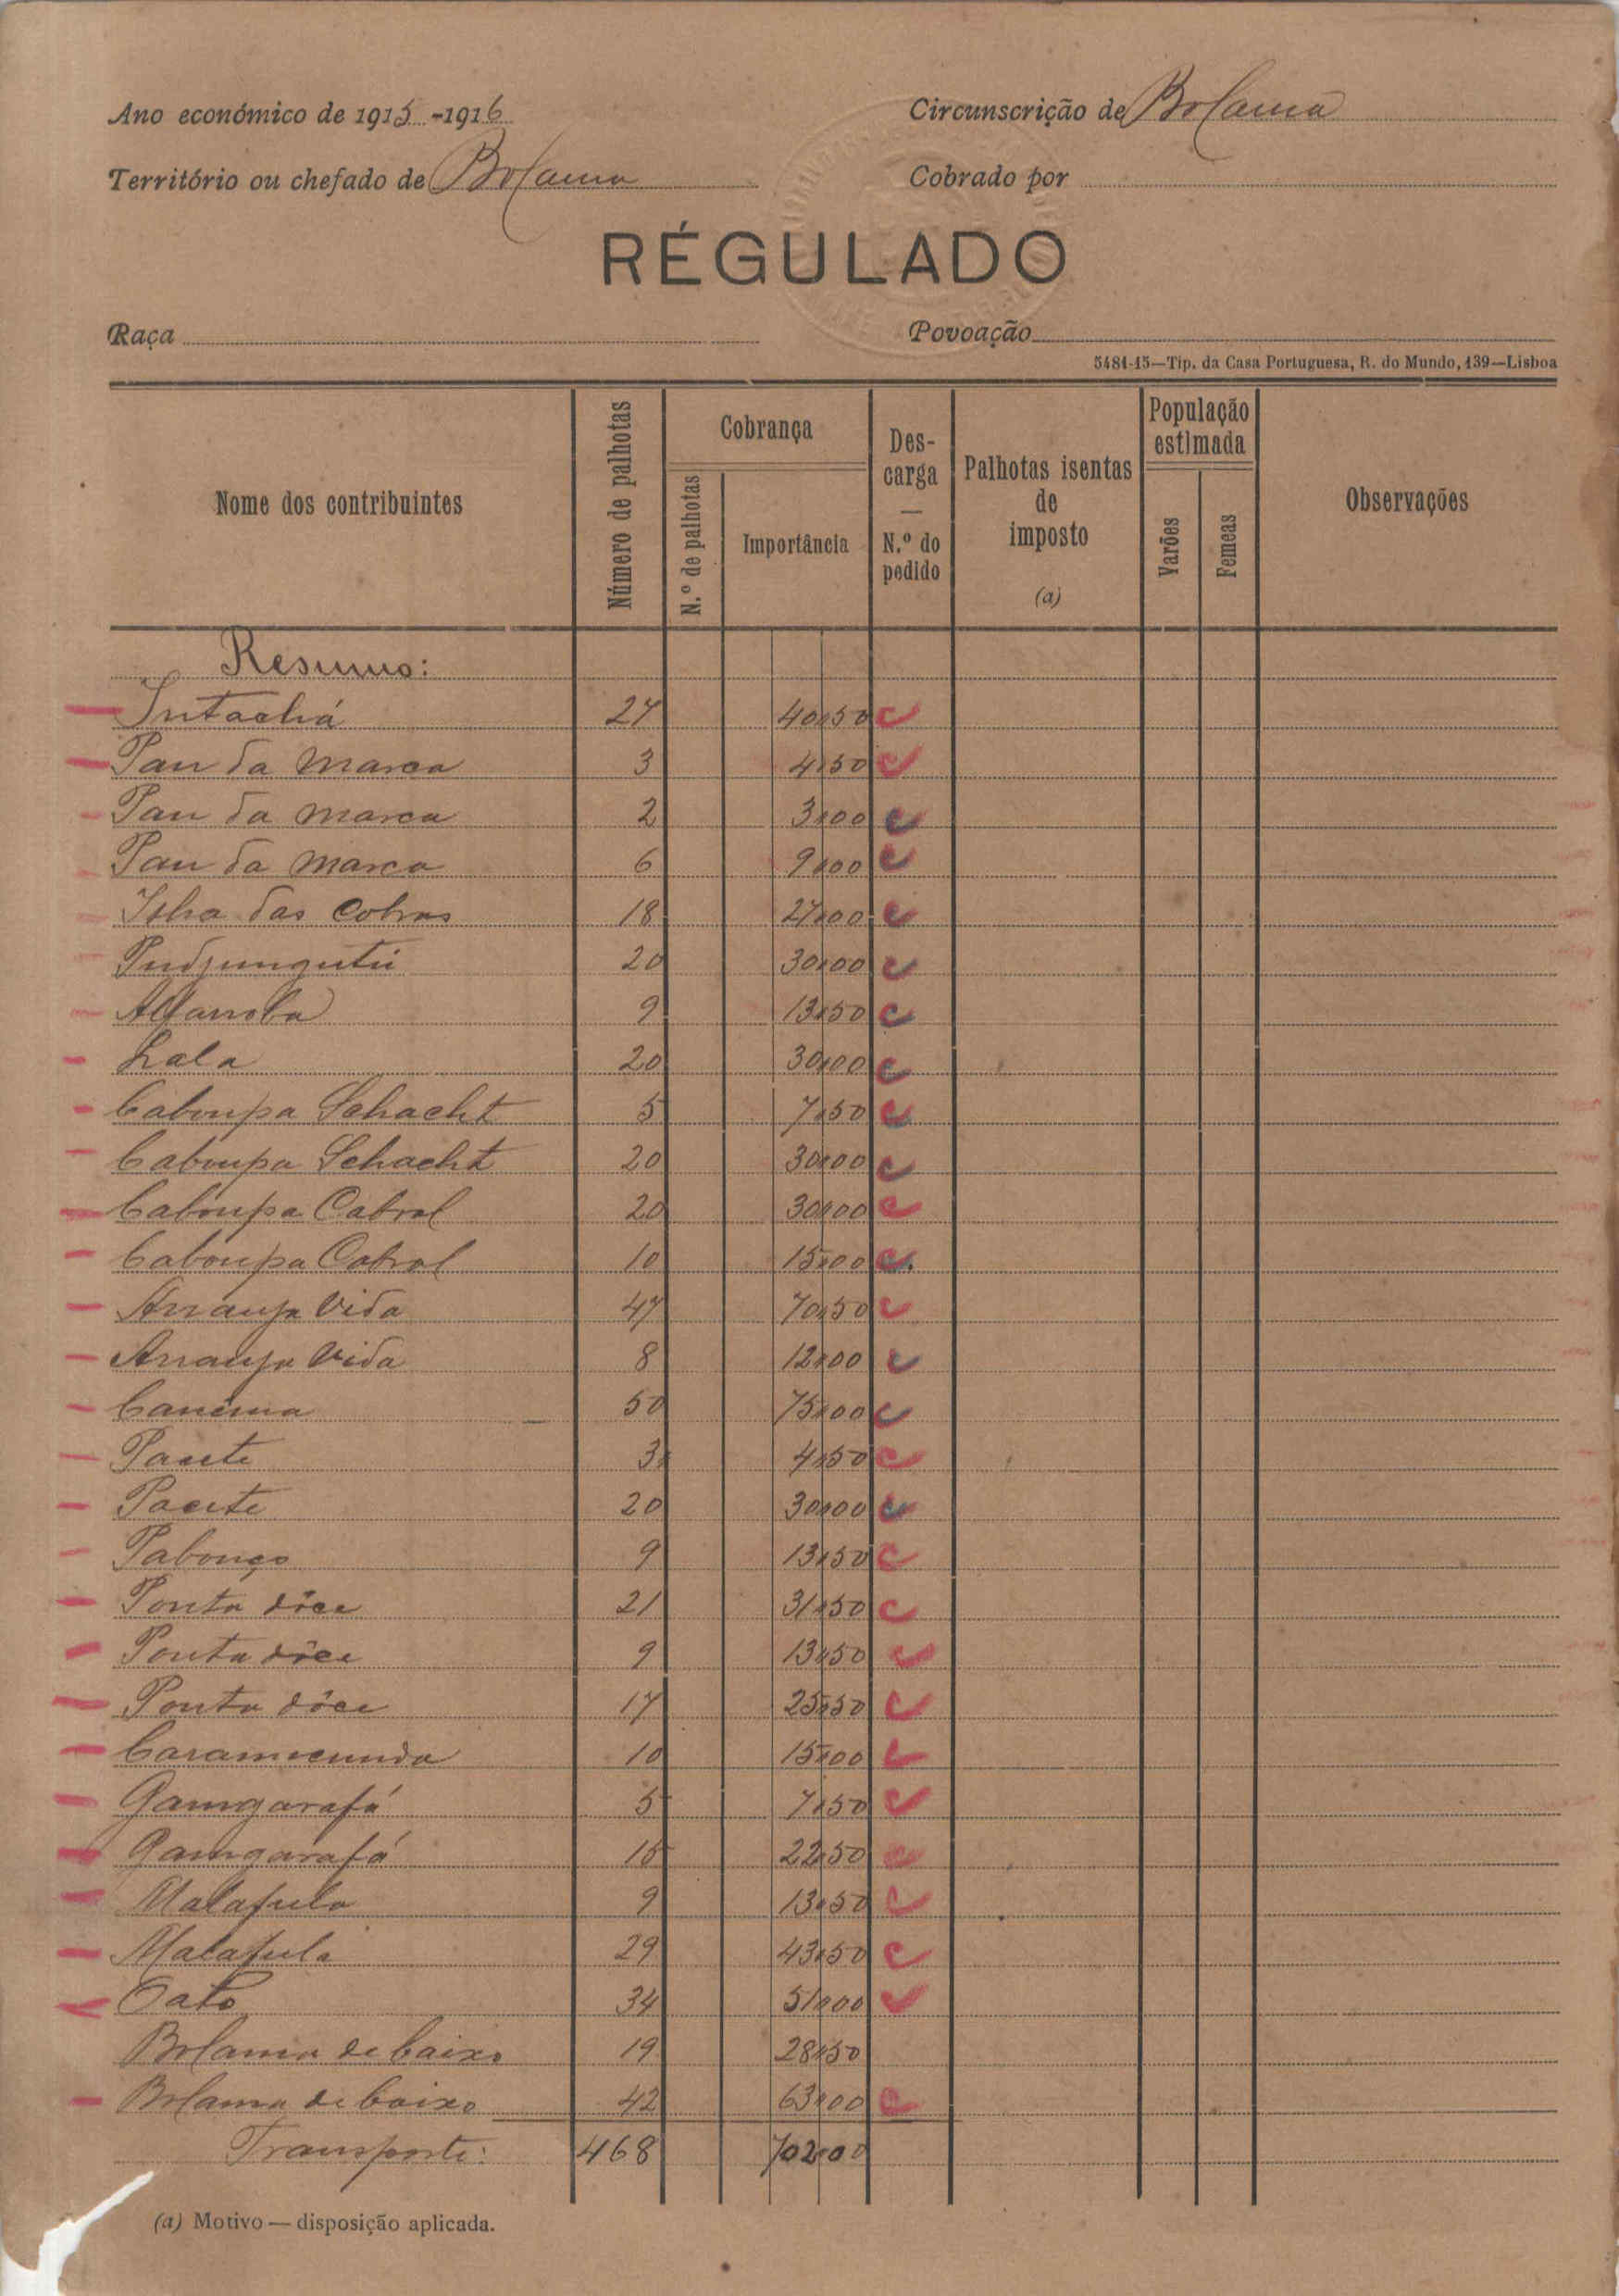 Ano económico de 1915-1916
Circunscrição de Bolama
Território ou chefado de Bolama
Cobrado por
RÉGULADO
Raça
Povoação
5481-15—Tip. da Casa Portuguesa, R. do Mundo, 139—Lisboa
Nome dos contribuintes
Número de palhotas
Cobrança
N.º de palhotas
Importância
Descarga — N.º do pedido
Palhotas isentas de imposto (a)
População estimada
Varões
Femeas
Observações
Resumo:
Intachá 27 40,50 c
Pau da Marca 3 4,50 c
Pau da Marca 2 3,00 c
Pau da Marca 6 9,00 c
Ilha das Cobras 18 27,00 c
20 30,00 c
Alfarroba 9 13,50 c
Lala 20 30,00 c
Caboupa Schacht 5 7,50 c
Caboupa Schacht 20 30,00 c
Caboupa Cabral 20 30,00 c
Caboupa Cabral 10 15,00 c
Arranja Vida 47 70,50 c
Arranja Vida 8 12,00 c
50 75,00 c
3 4,50 c
20 30,00 c
9 13,50 c
Ponta dôce 21 31,50 c
Ponta dôce 9 13,50 c
Ponta dôce 17 25,50 c
10 15,00 c
Gamgarafá 5 7,50 c
Gamgarafá 15 22,50 c
Malafula 9 13,50 c
Malafula 29 43,50 c
Oato 34 51,00 c
Bolama de baixo 19 28,50
Bolama de baixo 42 63,00 c
Transporte: 468 702,00
(a) Motivo — disposição aplicada.